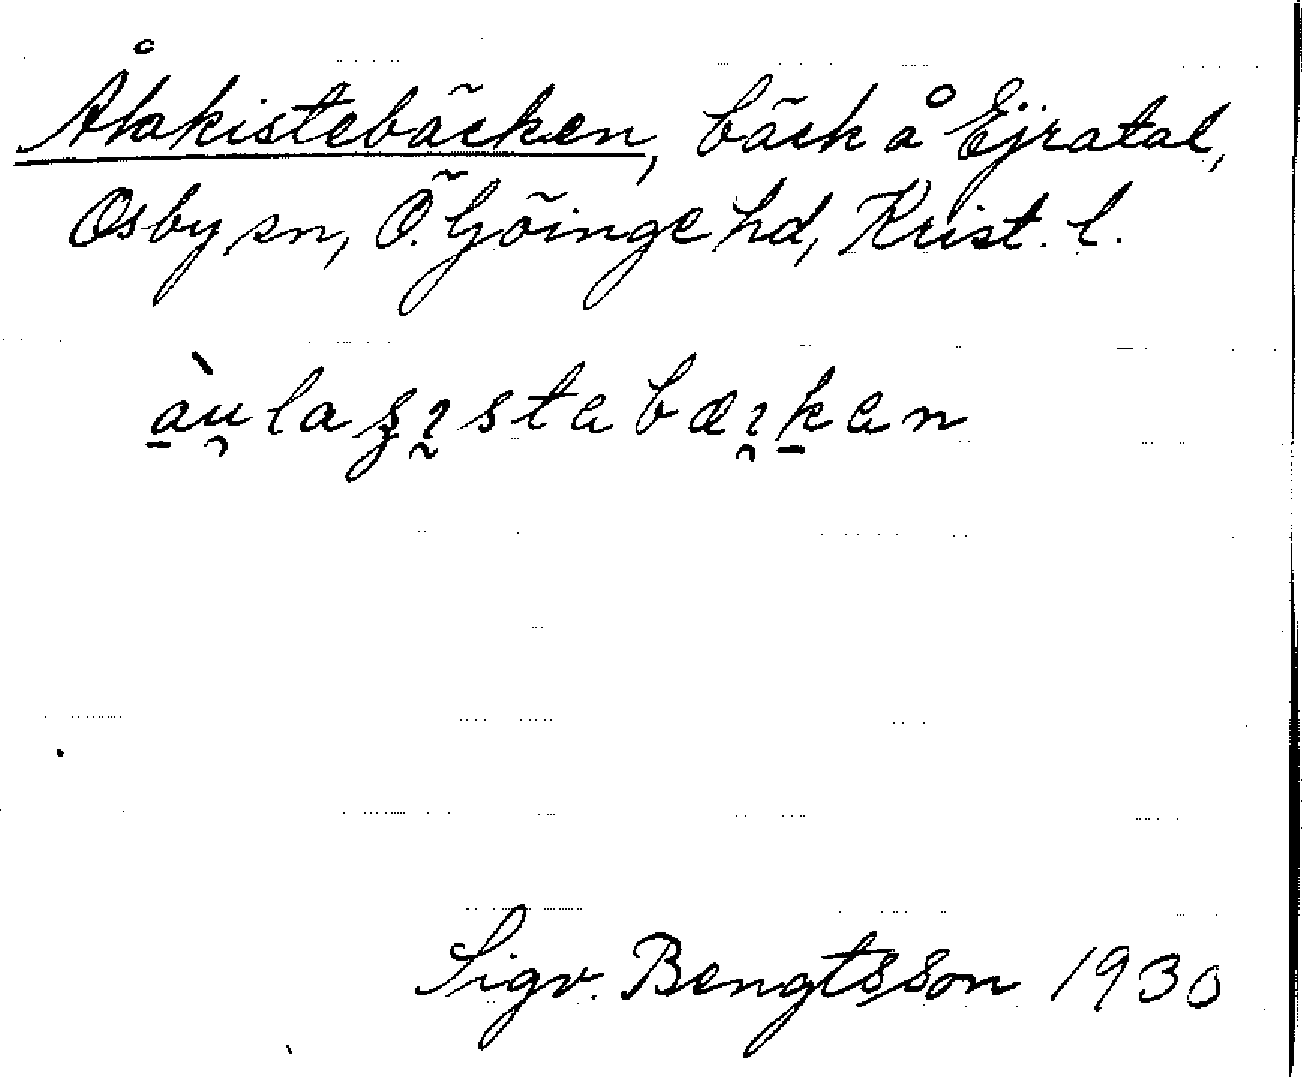 Ålakistebäcken, bäck å Ejratal,
Osby sn, Ö. Göinge hd, Krist. l.
àu̯laʂıstabæı̯kan
Sigv. Bengtsson 1930